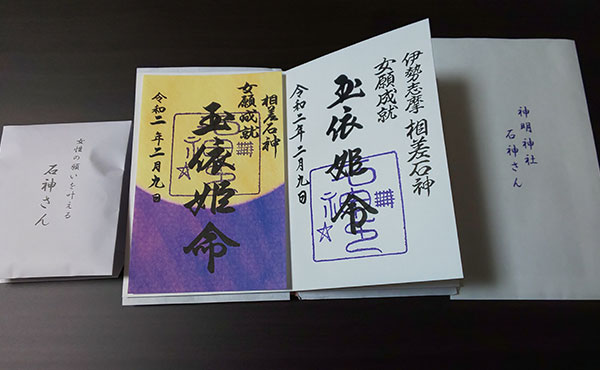 女性の願いを叶える
石神さん
相差石神
女願成就
玉依姫命
令和二年二月九日
伊勢志摩 相差石神
女願成就
玉依姫命
令和二年二月九日
神明神社
石神さん